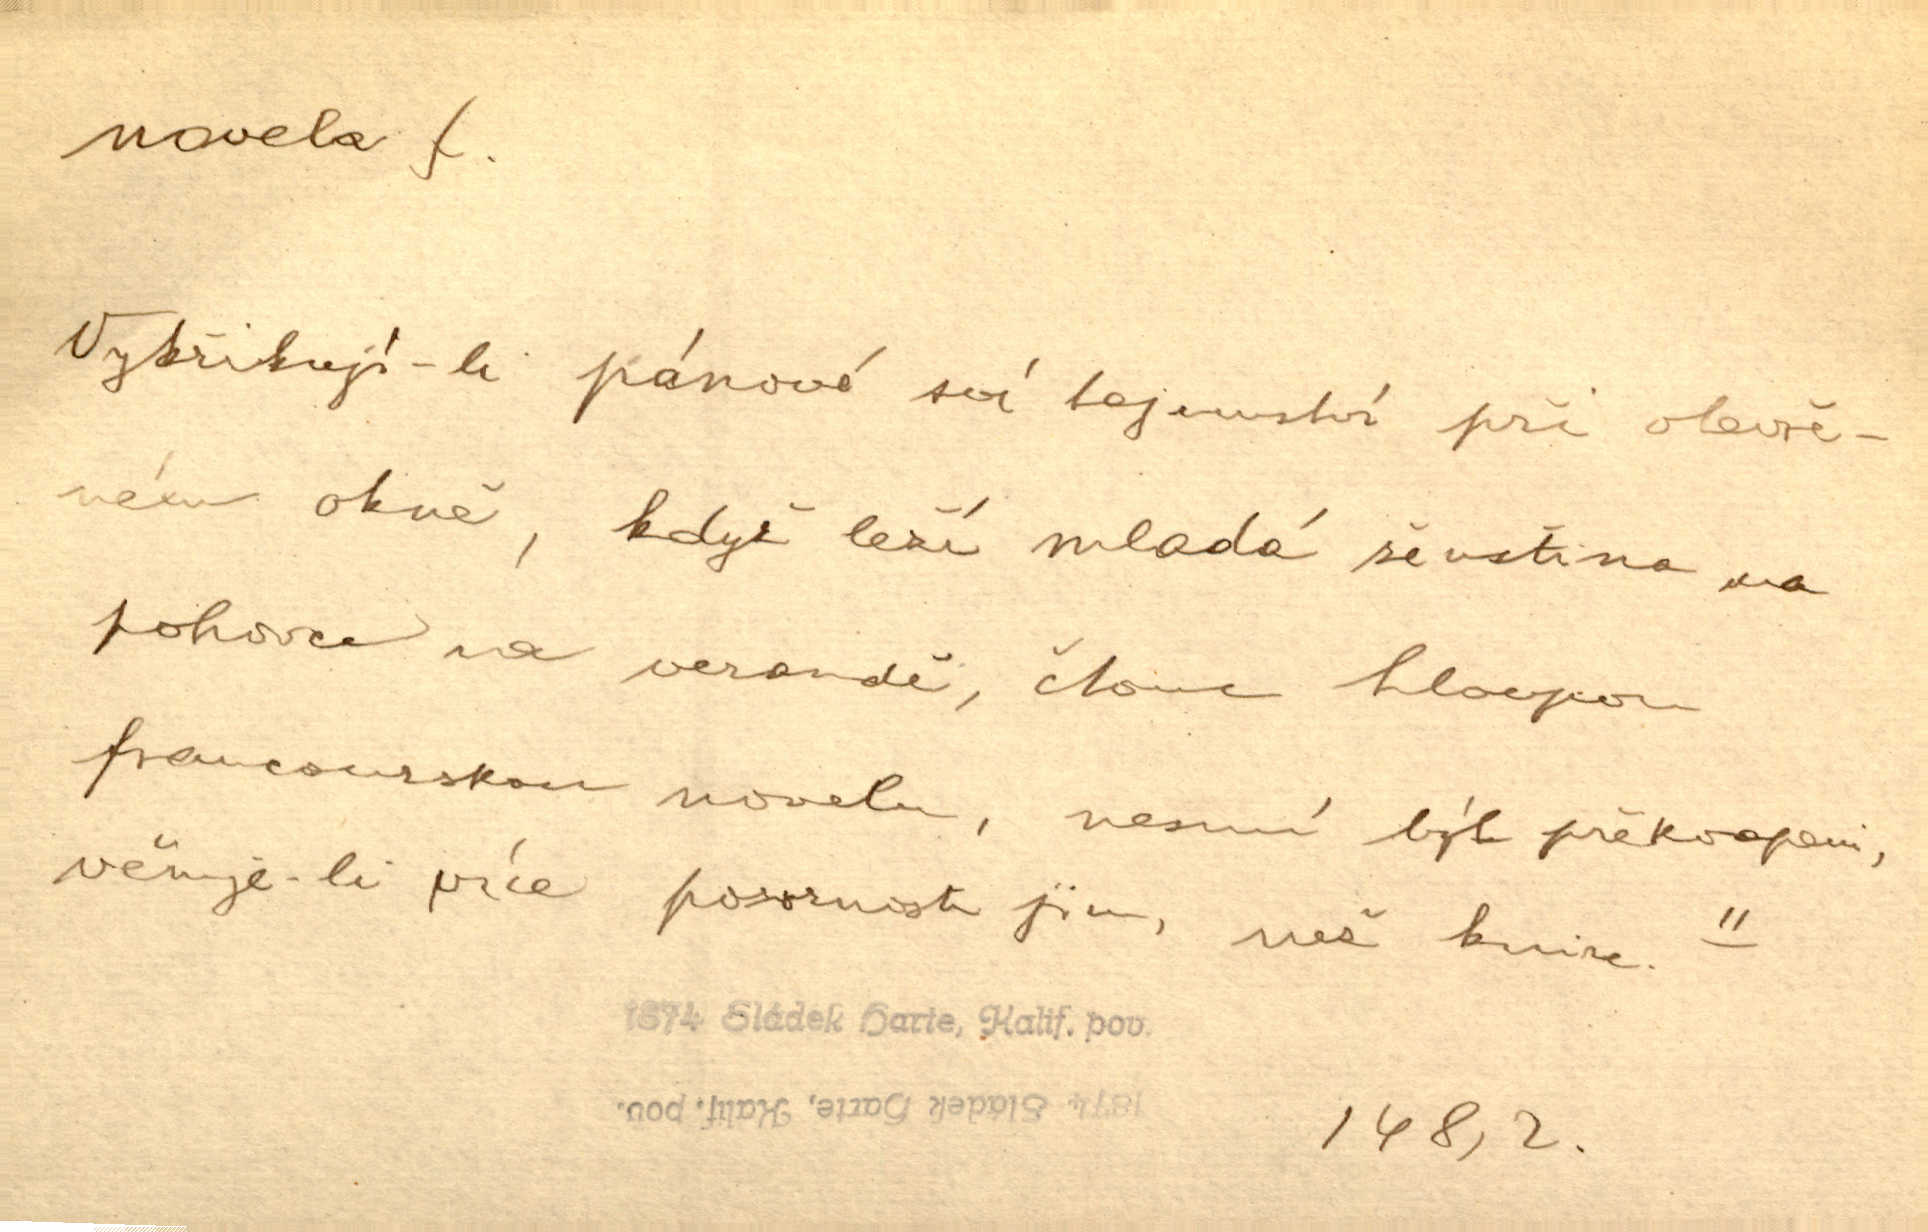 novela f.
Vykřikují-li pánové svá tajemství při otevře-
ném okně, když leží mladá ženština na
pohovce na verandě, čtouc hloupou
francouzskou novelu, nesmí být překvapeni,
věnuje-li více pozornosti jim, než knize. "
1874 Sládek Harte, Kalif. pov.
1874 Sládek Harte, Kalif. pov.
148, 2.